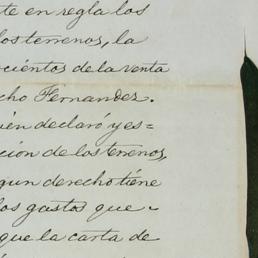 te en regla los
los terrenos, la
ocientos de la venta
cho Fernandez.
ién declaró y es=
cion de los terrenos,
gun derecho tiene
los gastos que -
que la carta de